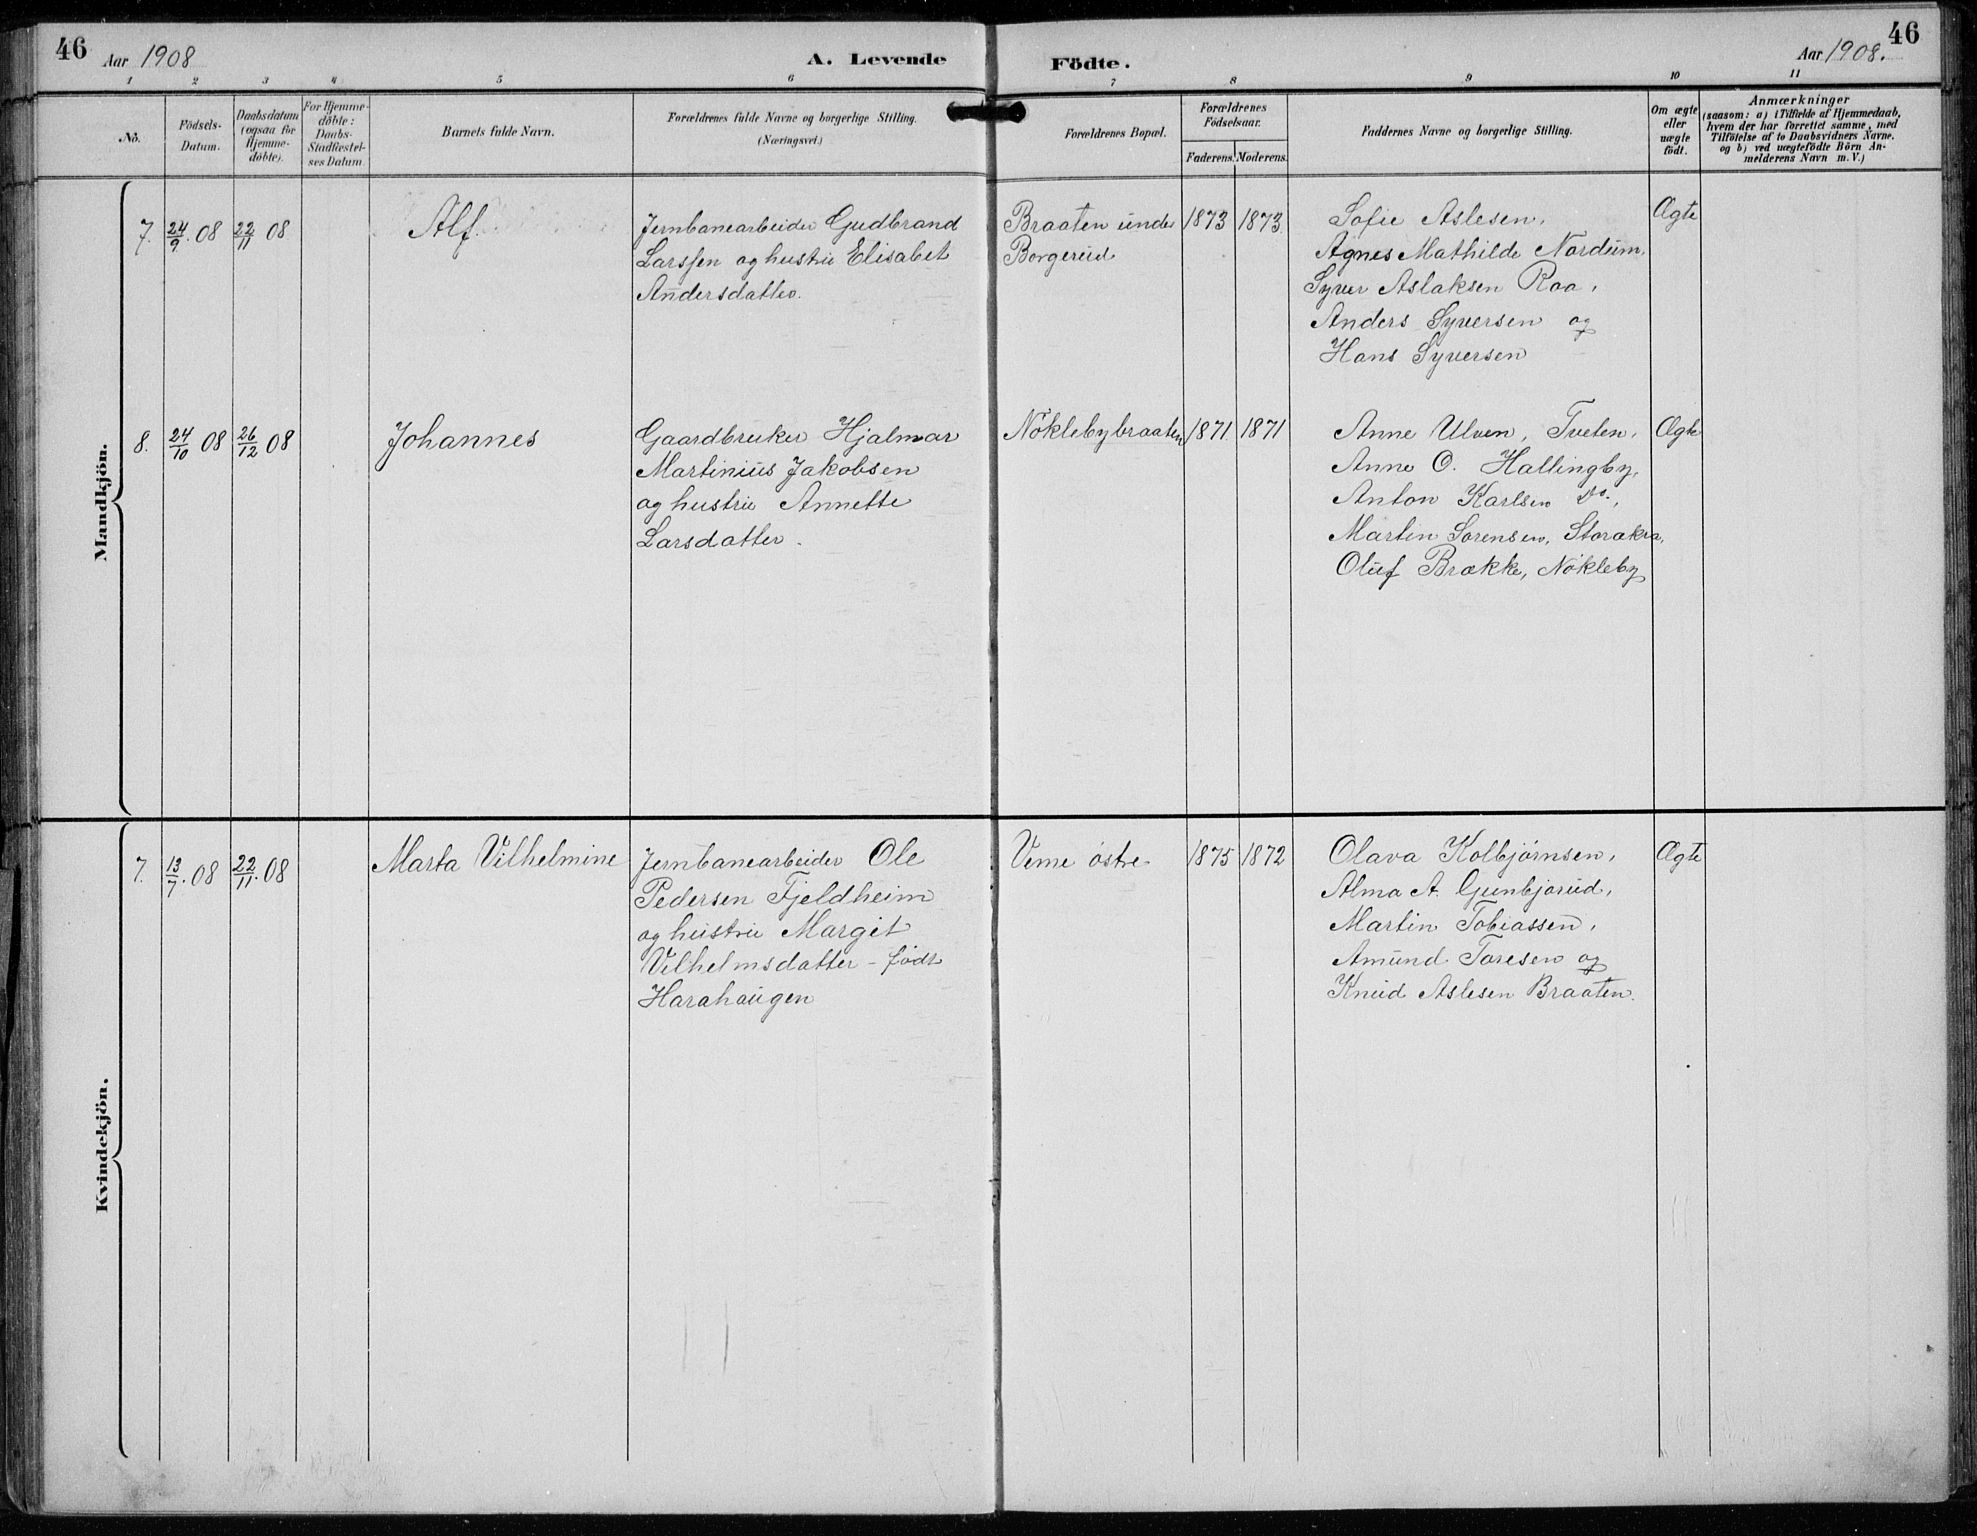 46
Aar 1908
A. Levende
Födte.
Aar 1908.
46
1 2 3 4 5 6 7 8 9 10 11
No.
Födsels-
Datum.
Daabsdatum
(ogsaa för
Hjemme-
döbte).
For Hjemme-
döbte:
Daabs-
Stadfæstel-
ses Datum
Barnets fulde Navn.
Forældrenes fulde Navne og borgerlige Stilling.
(Næringsvei.)
Forældrenes Bopæl.
Forældrenes
Födselsaar.
Faderens. Moderens.
Faddernes Navne og borgerlige Stilling.
Om ægte
eller
uægte
födt.
Anmærkninger
(saasom: a) i Tilfælde af Hjemmedaab,
hvem der har forrettet samme, med
Tilföielse af to Daabsvidners Navne.
og b) ved uægtefödte Börn An-
melderens Navn m. V.)
Mandkjön.
7. 24/9. 08 22/11 08
Alf.
Jernbanearbeider Gudbrand
Larssen og hustru Elisabet
Andersdatter.
Braaten under
Borgerud
1873 1873
Sofie Aslesen,
Agnes Mathilde Nordum,
Syver Aslaksen Raa,
Anders Syversen og
Hans Syversen
Ægte
8. 24/10 08 26/12 08
Johannes
Gaardbruker Hjalmar
Martinius Jakobsen
og hustru Annette
Larsdatter.
Nøklebybraaten
1871 1871
Anne Ulven, Tveten,
Anne O. Hallingby,
Anton Karlsen do.,
Martin Sørensen, Storakra,
Oluf Brække, Nøkleby
Ægte
Kvindekjön.
7. 13/7. 08 22/11. 08
Marta Vilhelmine
Jernbanearbeider Ole
Pedersen Fjeldheim
og hustru Margit
Vilhelmsdatter – født
Harahaugen
Veme østre
1875 1872
Olava Kolbjørnsen,
Alma A. Gunbjørud,
Martin Tobiassen,
Amund Toresen og
Knud Aslesen Braaten.
Ægte